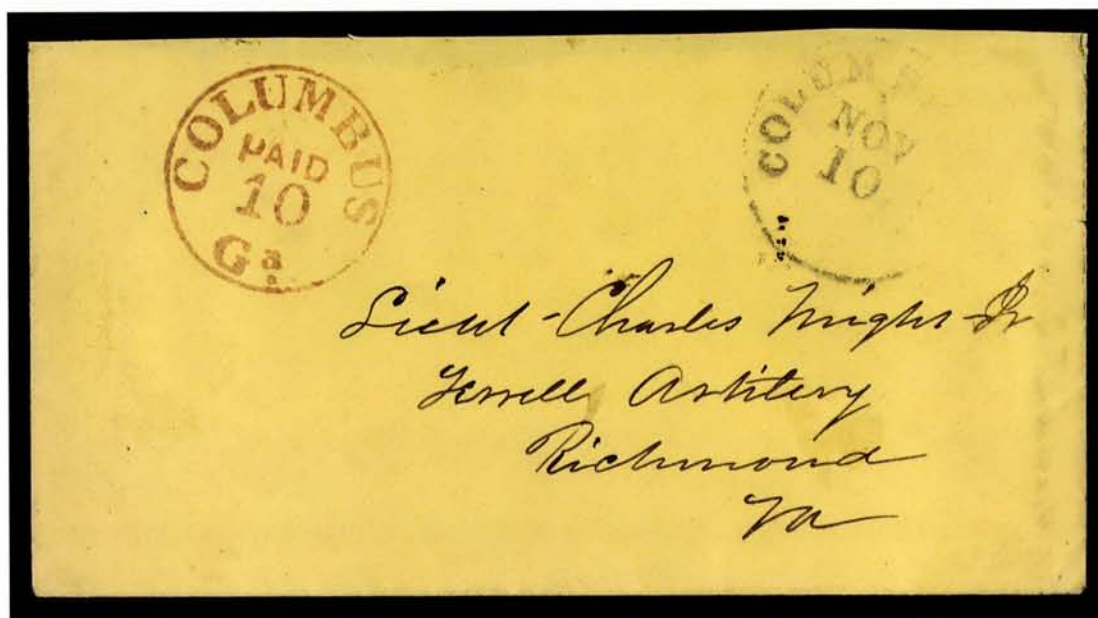 COLUMBUS
PAID
10
Ga.
COLUMB
NOV
10
Lieut - Charles Jr
Terrell Artillery
Richmond
Va